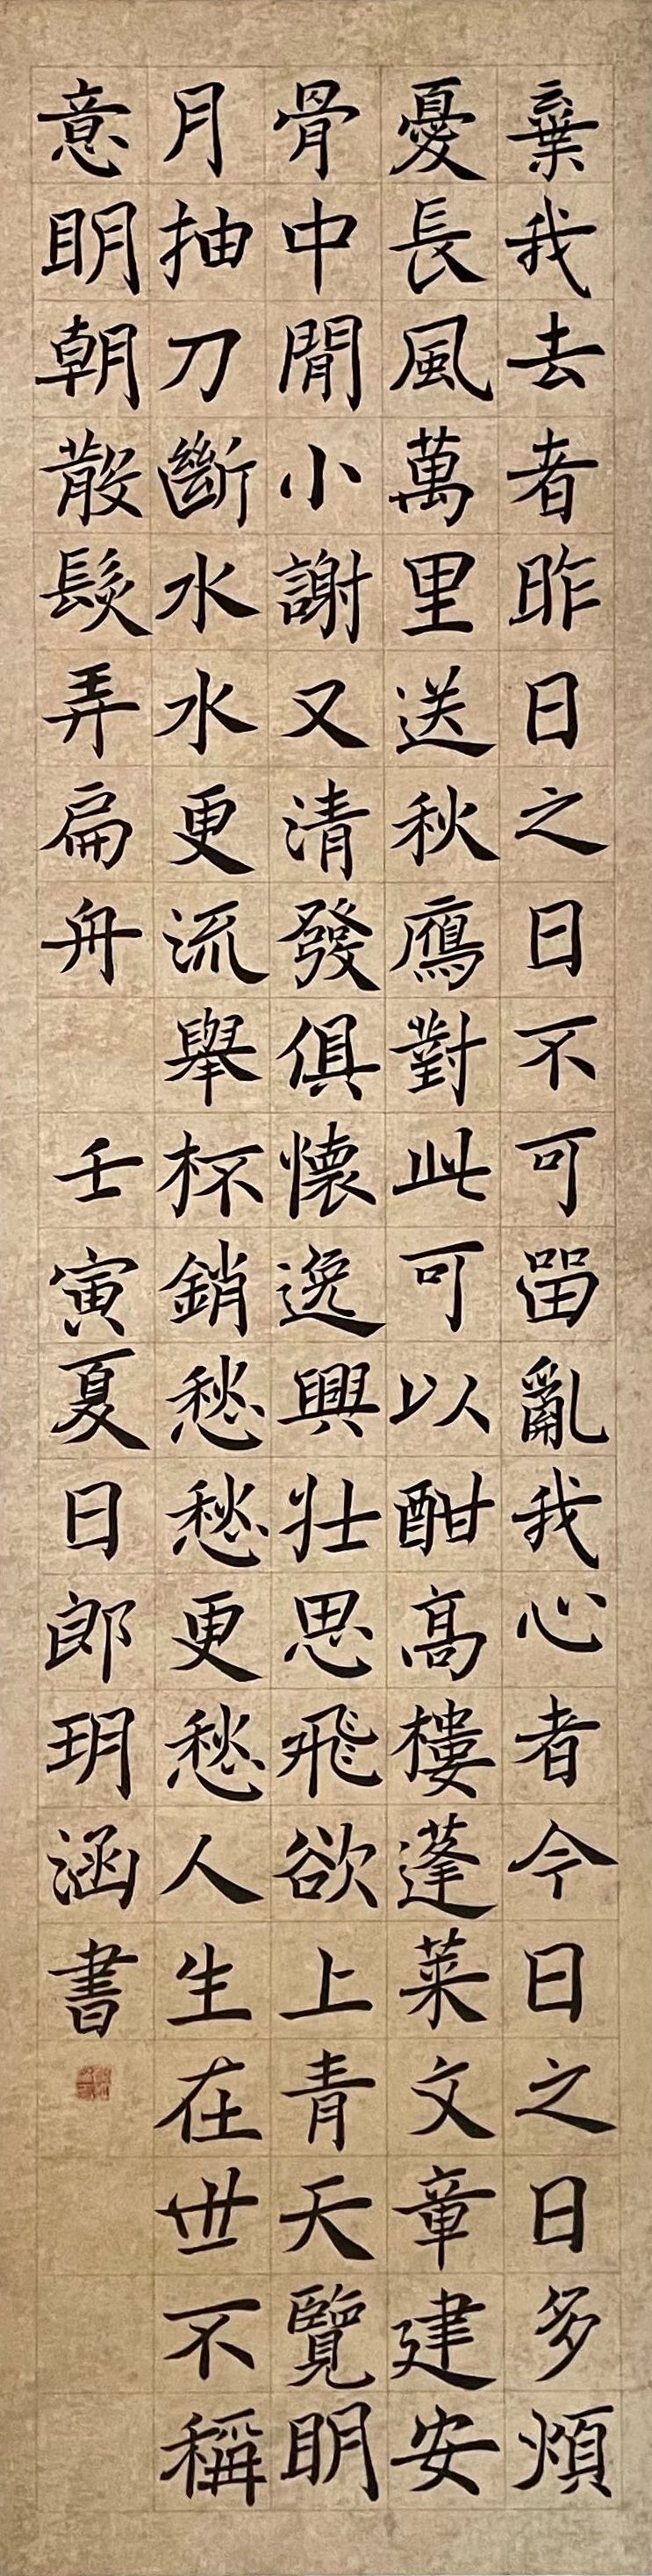 棄我去者昨日之日不可畱亂我心者今日之日多煩
憂長風萬里送秋鴈對此可以酣高樓蓬萊文章建安
骨中閒小謝又清發俱懷逸興壯思飛欲上青天覽明
月抽刀斷水水更流舉杯銷愁愁更愁人生在世不稱
意明朝散髮弄扁舟 壬寅夏日郎玥涵書